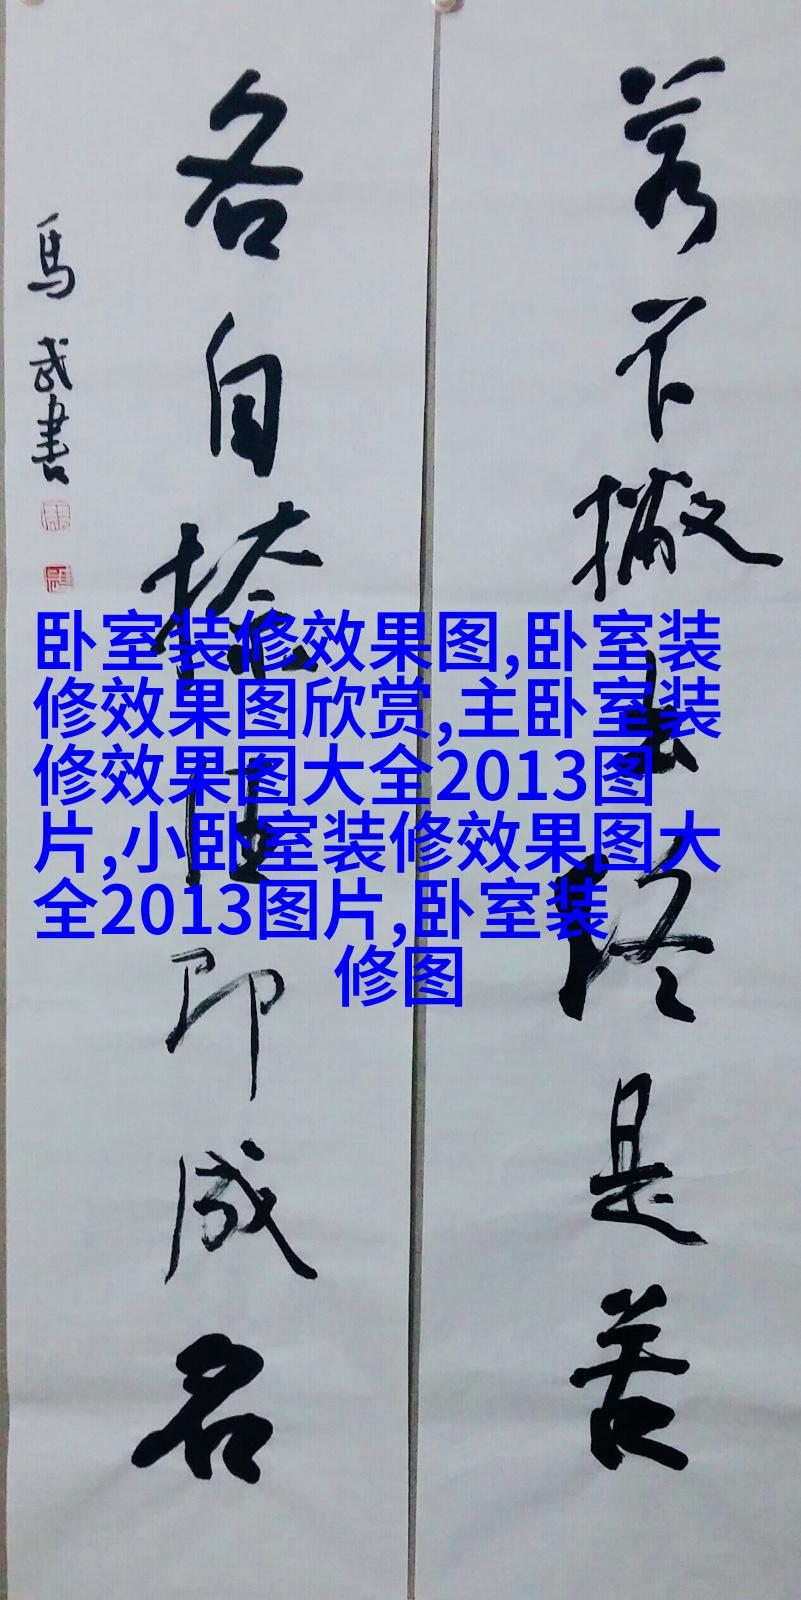 若不撇终是苦
各自捺住即成名
馬武書
卧室装修效果图,卧室装
修效果图欣赏,主卧室装
修效果图大全2013图
片,小卧室装修效果图大
全2013图片,卧室装
修图